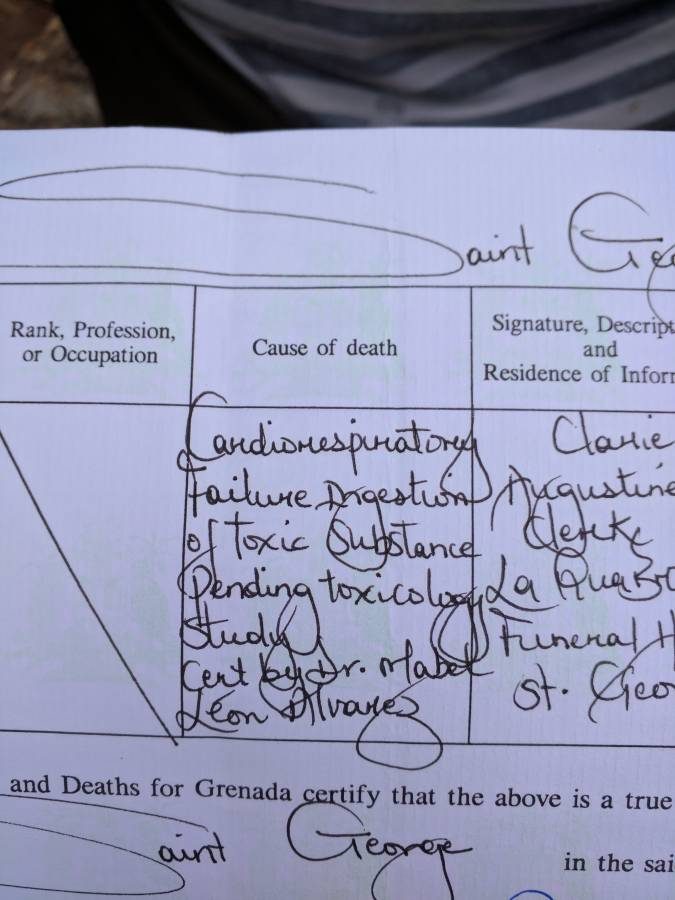 Saint Ge
Rank, Profession,
or Occupation
Cause of death
Signature, Descript
and
Residence of Inform
Cardiorespiratory
Failure Digestion
of toxic Substance
Pending toxicology
Study
Cert by Dr. Mabel
Léon Alvarez
Clarie
Augustine
Clerk
La Qua Bro
Funeral H
St. Geo
and Deaths for Grenada certify that the above is a true
Saint George
in the sai